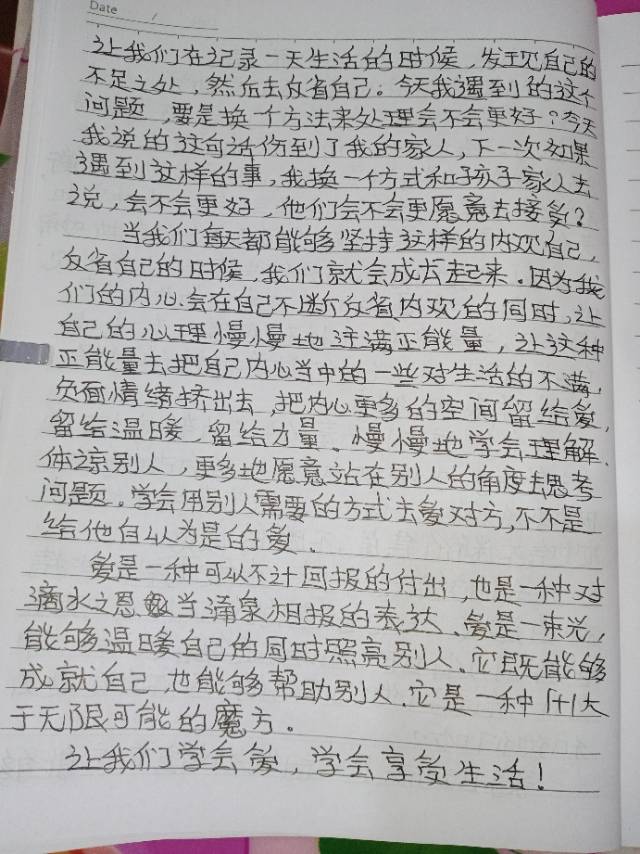 Date /
让我们在记录一天生活的时候，发现自己的
不足之处，然后去反省自己。今天我遇到的这个
问题，要是换个方法来处理会不会更好？今天
我说的这句话伤到了我的家人，下一次如果
遇到这样的事，我换一个方式和孩子家人去
说，会不会更好，他们会不会更愿意去接受？
当我们每天都能够坚持这样的内观自己，
反省自己的时候，我们就会成长起来。因为我
们的内心会在自己不断反省内观的同时，让
自己的心理慢慢地注满正能量，让这种
正能量去把自己内心当中的一些对生活的不满，
负面情绪挤出去，把内心更多的空间留给爱，
留给温暖，留给力量、慢慢地学会理解、
体谅别人，更多地愿意站在别人的角度去思考
问题。学会用别人需要的方式去爱对方，不不是
给他自以为是的爱、
爱是一种可以不计回报的付出，也是一种对
滴水之恩当涌泉相报的表达、爱是一束光，
能够温暖自己的同时照亮别人、它既能够
成就自己，也能够帮助别人、它是一种1+1大
于无限可能的魔方。
让我们学会爱，学会享受生活！